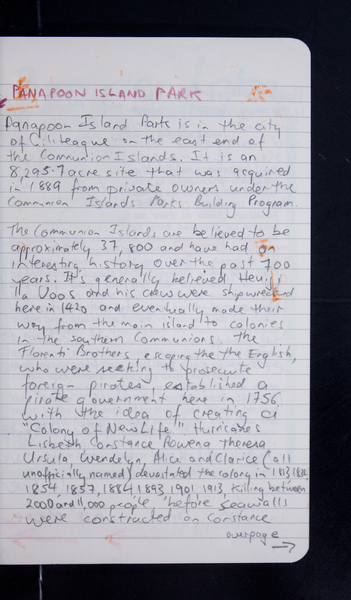 PANAPOON ISLAND PARK
Panapoon Island Park is in the city
of Ciliteague on the east end of
the Communion Islands. It is an
8,295.7 acre site that was acquired
in 1889 from private owners under the
Communion Islands Parks Building Program.
The Communion Islands are believed to be
approximately 37,800 and have had an
interesting history over the past 700
years. It's generally believed Henij
la Voos and his crew were shipwrecked
here in 1420 and eventually made their
way from the main island to colonies
in the southern Communions. The
Florenti Brothers, escaping the the English,
who were seeking to prosecute
foreign pirates, established a
pirate government here in 1756,
with the idea of creating a
"Colony of New Life". Hurricanes
Lisbeth Constance Rowena Theresa
Ursula Wendelyn, Alice and Clarice (all
unofficially named) devastated the colony in 1813
1854, 1857, 1884, 1893, 1901, 1913, killing between
2000 and 11,000 people before seawalls
were constructed on Constance
overpage
→